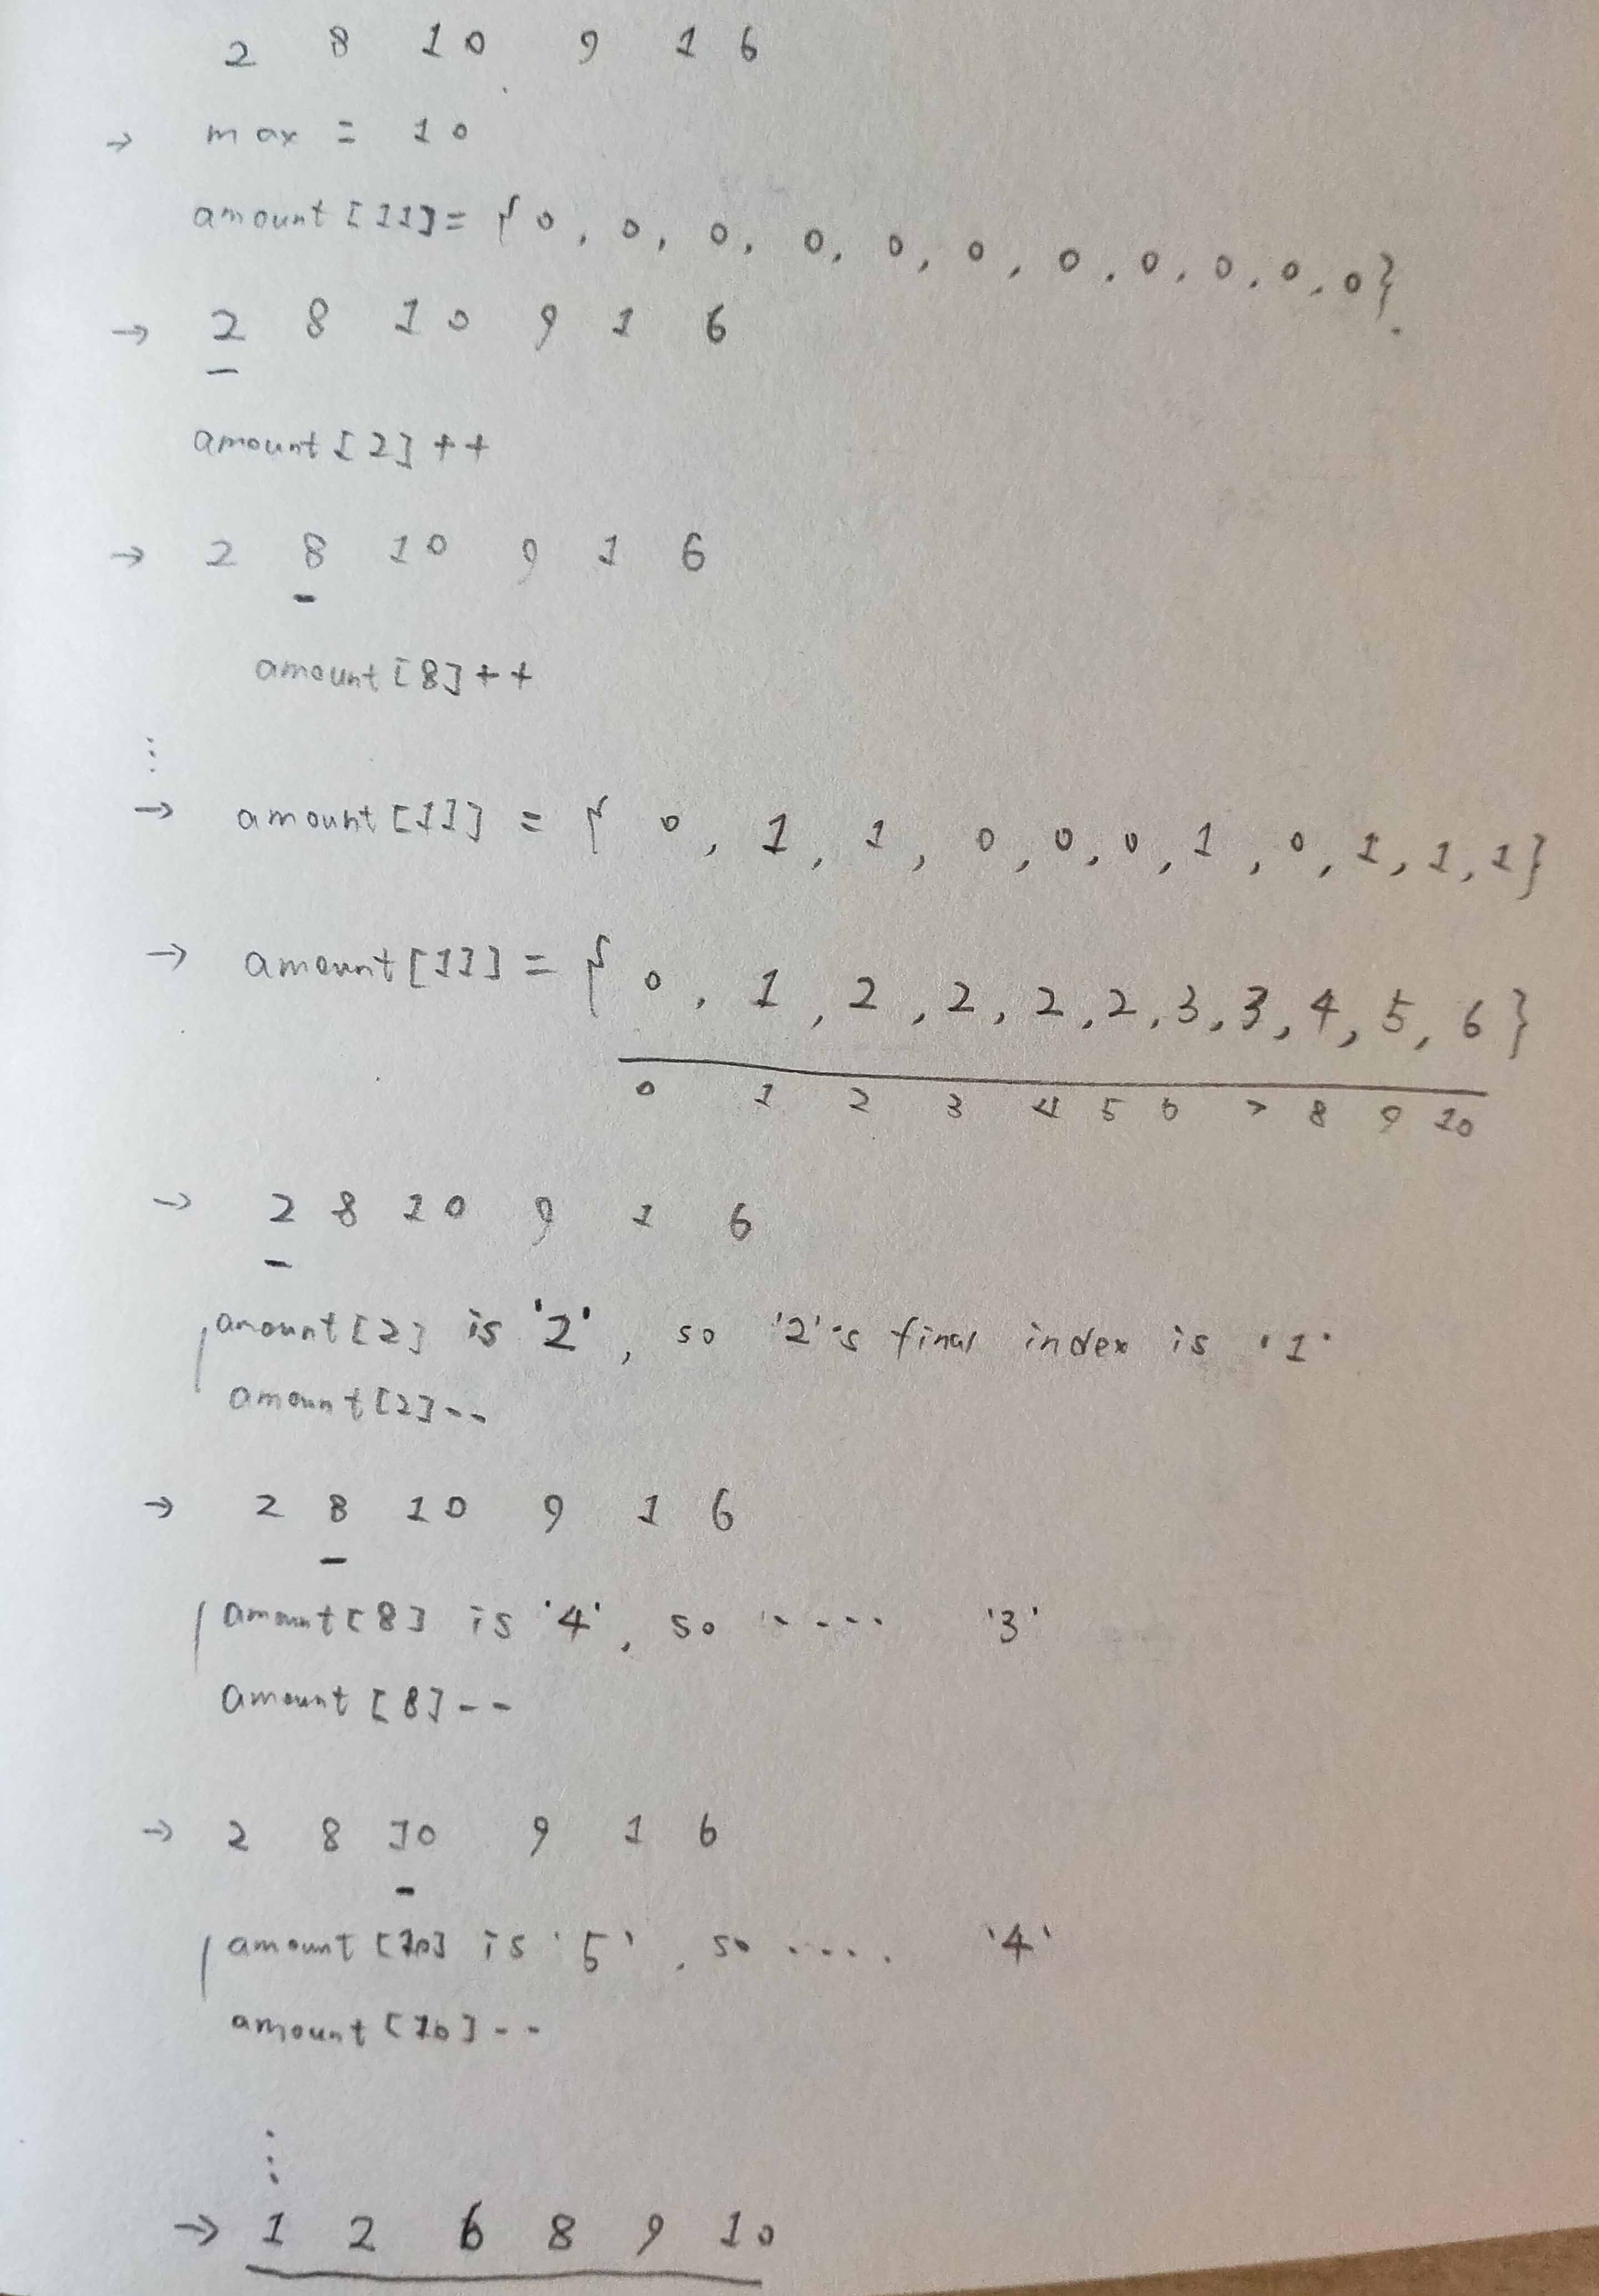 2 8 10 9 1 6
→ max = 10
amount[11]= {0, 0, 0, 0, 0, 0, 0, 0, 0, 0, 0}.
→ 2 8 10 9 1 6
amount[2]++
→ 2 8 10 9 1 6
amount[8]++
⋮
→ amount[11] = { 0, 1, 1, 0, 0, 0, 1, 0, 1, 1, 1}
→ amount[11] = { 0, 1, 2, 2, 2, 2, 3, 3, 4, 5, 6}
0 1 2 3 4 5 6 7 8 9 10
→ 2 8 10 9 1 6
amount[2] is '2', so '2's final index is '1'
amount[2]--
→ 2 8 10 9 1 6
amount[8] is '4', so ..... '3'
amount[8]--
→ 2 8 10 9 1 6
amount[10] is '5', so ..... '4'
amount[10]--
⋮
→ 1 2 6 8 9 10